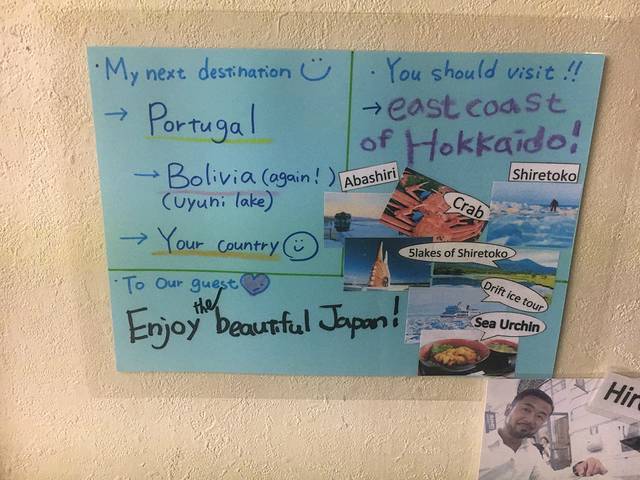 · My next destination
→ Portugal
→ Bolivia (again!)
(uyuni lake)
→ Your country
· You should visit!!
→ east coast
of Hokkaido!
Abashiri
Crab
Shiretoko
5lakes of Shiretoko
Drift ice tour
Sea Urchin
· To our guest
the
Enjoy beautiful Japan!